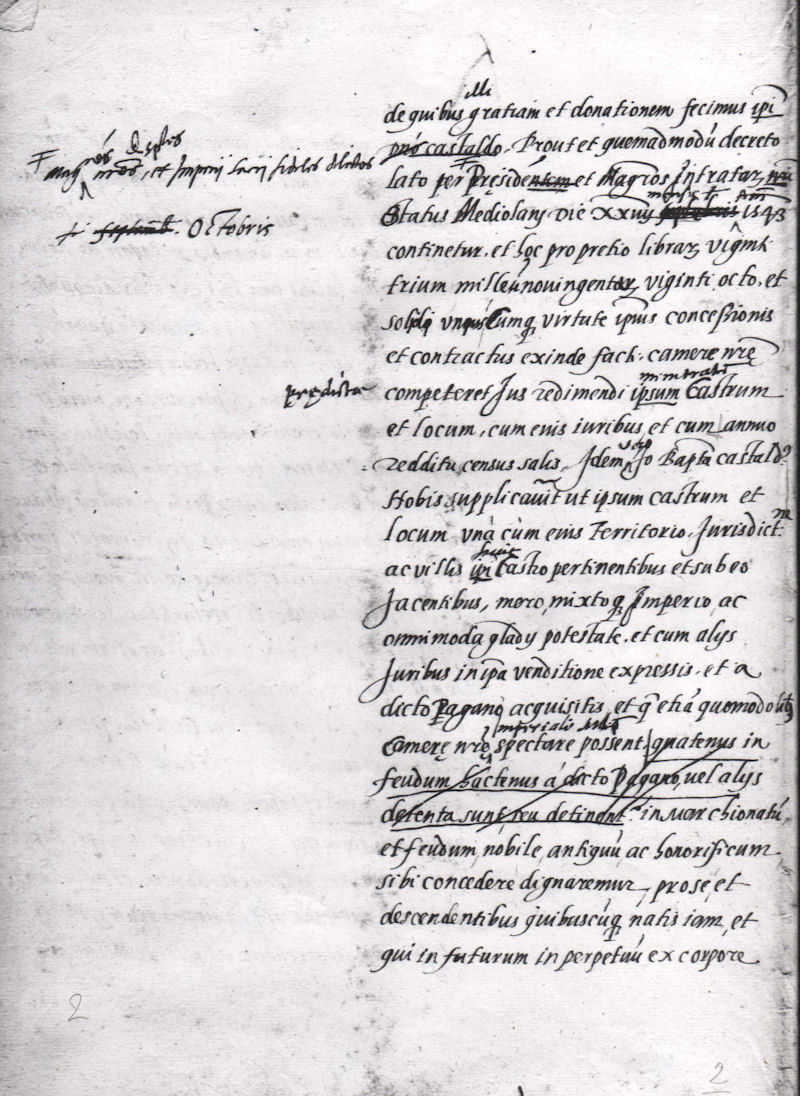 illi
de quibus gratiam et donationem fecimus ipi
castaldo. Prout et quemadmodú decreto
lato per Presidentem et Magros Intratar,
Status Mediolanj Die XXIIIJ 1543
continetur. et hoc pro pretio librar, viginti
trium mille novingentar, viginti octo. et
virtute ipius concessionis
et contractus exinde facti. camere nrē
competeret Jus redimendi ipsum Castrum
et locum, cum eius iuribus et cum annuo
redditu census salis, Idem Jo Bapta castald.
Nobis supplicavit ut ipsum castrum et
locum vná cùm eius Territorio, Jurisdict.
ac villis ipi Castro pertinentibus et sub eo
Jacentibus, mero, mixtoq Imperio, ac
omnimoda gladÿ potestate. et cum alijs
Juribus in ipa venditione expressis. et a
dicto Pagano acquisitis, et q etiá quomodolibꝫ
Camerę nrę spectare possent, quatenus in
feudum hactenus á dicto Pagano, vel alijs
detenta sunt, seu detinent. in Marchionatú,
et feudum, nobile, antiquú ac honorificum
sibi concedere dignaremur, pro se, et
descendentibus quibuscúq natis iam, et
qui in futurum in perpetuú ex corpore
et Imperij Sacri fideles dilectos
Octobris
prędicta
2
2